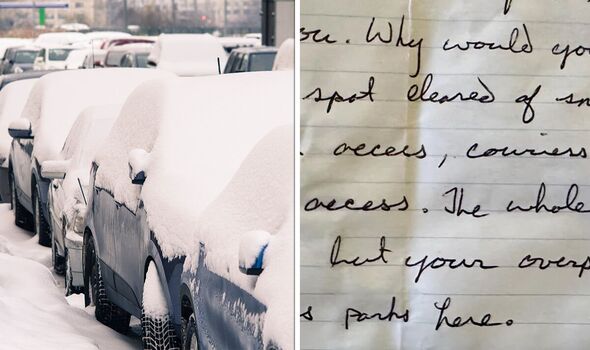 ou. Why would you
spot cleared of sn
access, couriers
access. The whole
but your overp
s parks here.